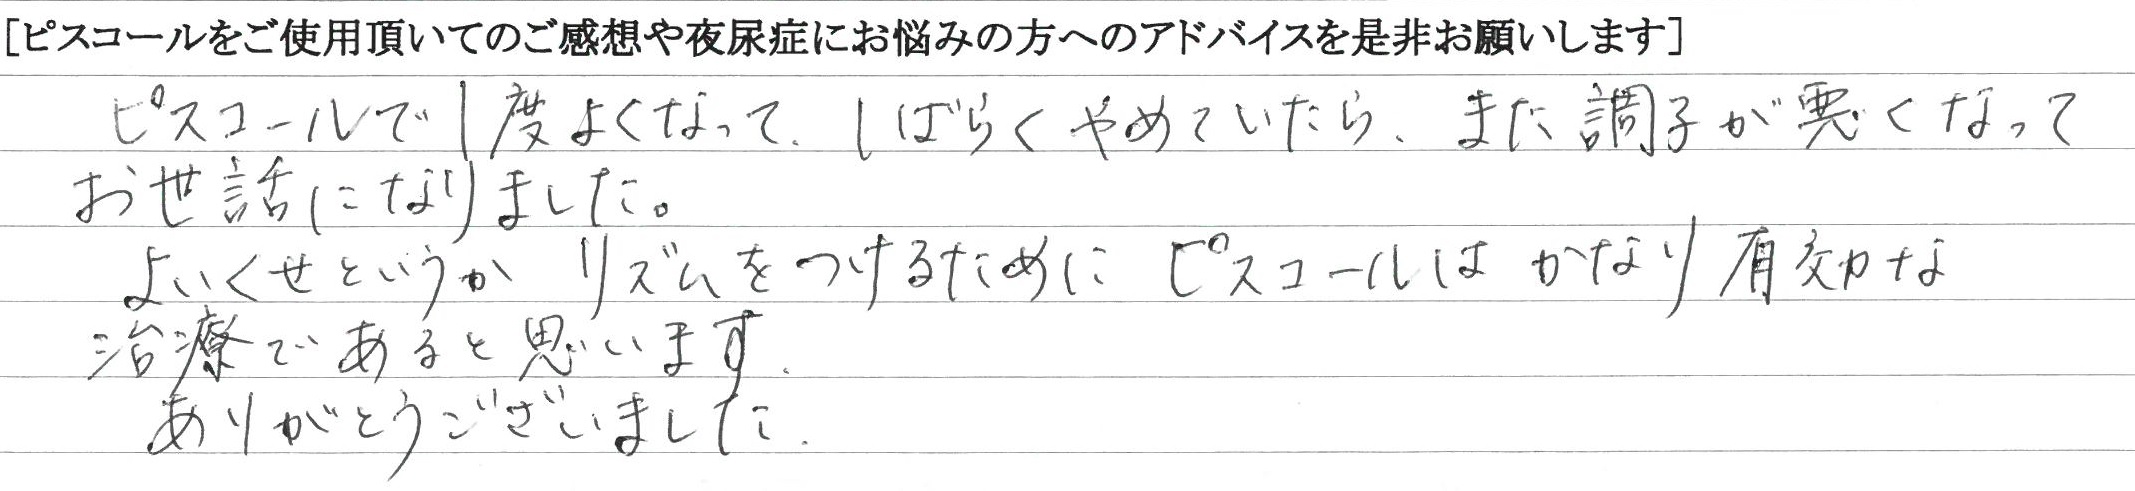 [ピスコールをご使用頂いてのご感想や夜尿症にお悩みの方へのアドバイスを是非お願いします]
ピスコールで1度よくなって、しばらくやめていたら、また調子が悪くなって
お世話になりました。
よいくせというか リズムをつけるために ピスコールは かなり有効な
治療であると思います.
ありがとうございました.